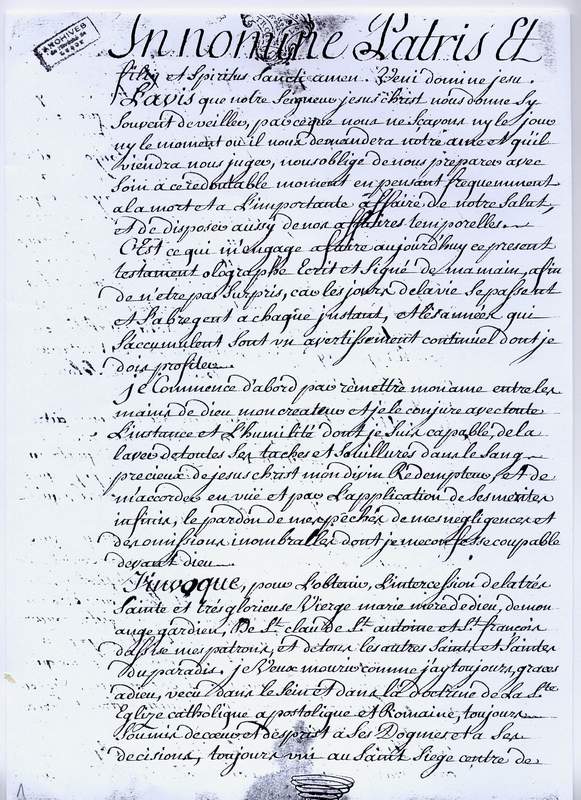 ARCHIVES
In nomine Patris Et
filij et Spiritus Sancti amen. Veni domine jesu.
L'avis que notre Seigneur jesus christ nous donne Sy
Souvent de veiller, parceque nous ne Scavons ny le jour
ny le moment ou il nous demandera notre ame et qu'il
viendra nous juger, nous oblige de nous préparer avec
Soin a ce redoutable moment en pensant frequemment
a la mort et a L'importante affaire de notre Salut,
et de disposer aussy de nos affaires temporelles.
C'Est ce qui m'engage a faire aujourd'huy ce present
testament olographe Ecrit et Signé de ma main, afin
de n'etre pas Surpris, car les jours de la vie Se passent
et S'abregent a chaque jnstant, et les années qui
S'accumulent Sont un avertissement continuel dont je
dois profiter.
je Commence d'abord par remettre mon ame entre les
mains de dieu mon createur et je le conjure avec toute
L'instance et L'humilité dont je Suis capable, de la
laver de toutes Ses taches et Souillures dans le Sang
precieux de jesus christ mon divin Redempteur, et de
m'accorder en vuie et par L'application de Ses merites
infinis, le pardon de mes pêchés de mes negligences et
des omissions inombrables dont je me confesse coupable
devant dieu.
J'invoque, pour L'obtenir, L'intercession de la trés
Sainte et trés glorieuse Vierge marie mere de dieu, de mon
ange gardien, De St. claude St. antoine et St. françois
d'assise mes patrons, et de tous les autres Saints et Saintes
du paradis. je Veux mourir comme j'ay toujours, graces
a dieu, vecu dans le Sein et dans la doctrine de La Ste
Eglize catholique apostolique et Romaine, toujours
Soumis de cœur et d'esprit à Ses Dogmes et a Ses
decisions, toujours uni au Saint Siege centre de
1